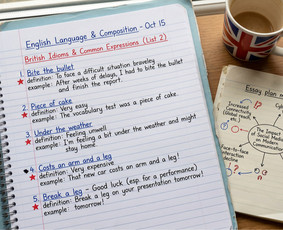 English Language & Composition - Oct 15
British Idioms & Common Expressions (List 2)
1. Bite the bullet
definition: To face a difficult situation bravely
example: After weeks of delays, I had to bite the bullet
and finish the report.
2. Piece of cake
definition: Very easy
example: The vocabulary test was a piece of cake.
3. Under the weather
definition: Feeling unwell
example: I'm feeling a bit under the weather and might
stay home.
4. Costs an arm and a leg
definition: Very expensive
example: That new car costs an arm and a leg!
5. Break a leg - Good luck (esp. for a performance)
definition: Break a leg on your presentation tomorrow!
example: tomorrow!
Essay plan
Increased
Connectivity
(Global reach,
etc.)
The Impact
of Social Med
on Modern
Face-to-face
interaction
decline